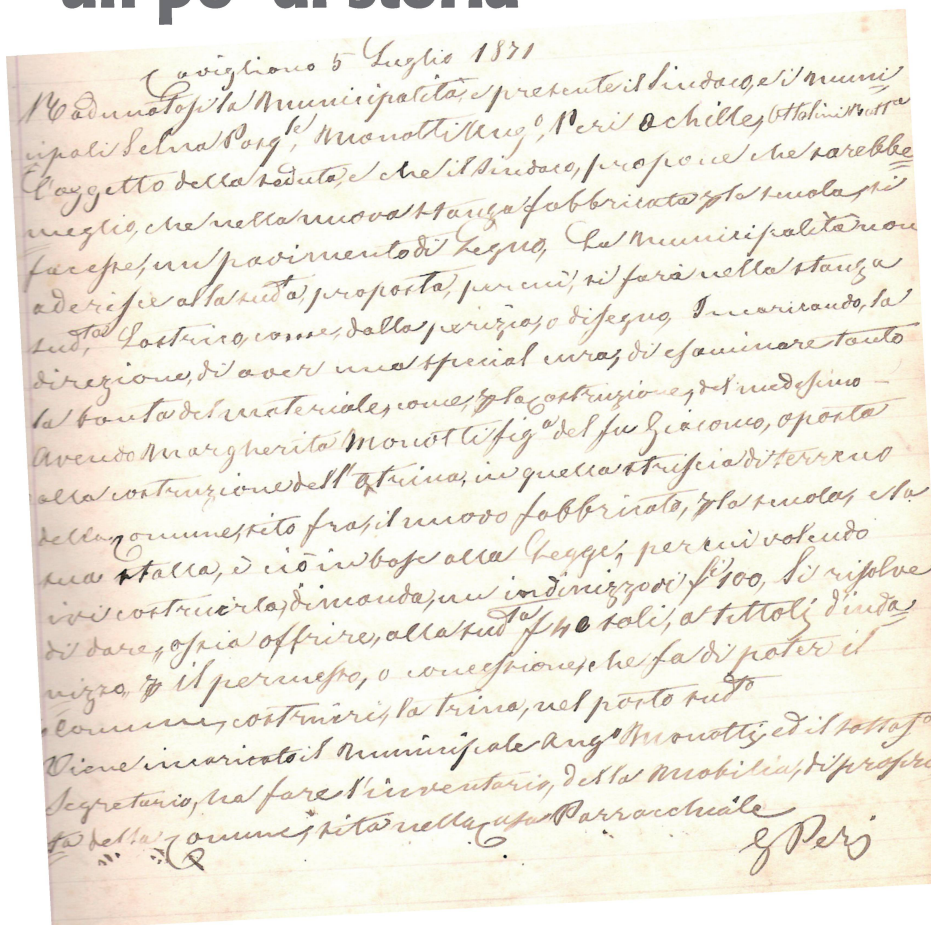 un po' di storia
Cavigliano 5 Luglio 1871
Radunatosi la Municipalità, e presente il Sindaco, e i Muni
cipali Selna Pasq.le, Monotti Ang.o, Peri Achille, Ottolini Batt.a
l'oggetto della seduta, e che il Sindaco, propone che sarebbe
meglio, che nella nuova stanza fabbricata p la scuola, si
facesse, un pavimento di Legno, La Municipalità non
aderisce alla sud.a, proposta, per cui, si farà nella stanza
sud.ta Lastrico, come, dalla perizia, o disegno, Incaricando, la
direzione, di aver una special cura, di esaminare tanto
la bontà del materiale, come, p la costruzione, del medesimo –
Avendo Margherita Monotti fig.a del fu Giacomo, oposta
alla costruzione dell'atrina, in quella striscia di terreno
della Comune, sito fra, il nuovo fabbricato, p la scuola, e la
sua stalla, è ciò in base alla Legge, per cui volendo
ivi costruirla, dimanda, un indinizzo di f.i 100, Si risolve
di dare, ossia offrire, alla sud.ta f 40 soli, a tittoli d'inda
nizzo, p il permesso, o concessione, che fa di poter il
Comune, costruiri, la trina, nel posto sud.to
Viene incaricato il Municipale Ang.o Monotti, ed il sottos.o
Segretario, ha fare l'inventario, della Mobilia, di propri
tà della Comune, sita nella Casa Parrocchiale
G Peri